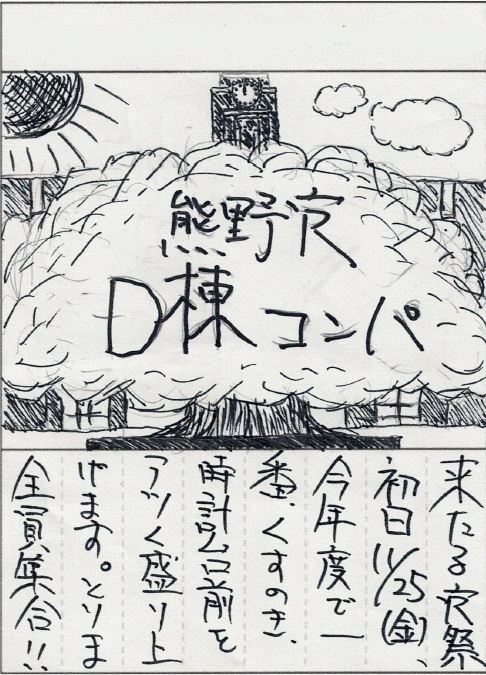 熊野寮
D棟コンパ
来たる寮祭
初日11/25(金)、
今年度で一
番、くすのき、
時計台前を
アツく盛り上
げます。とりま
全員集合!!